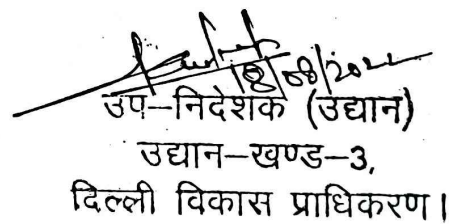 18/08/2022
उप-निदेशक (उद्यान)
उद्यान-खण्ड-3,
दिल्ली विकास प्राधिकरण।